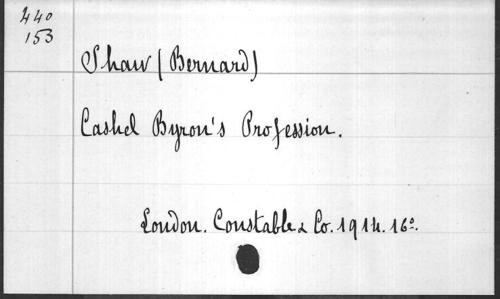 440
153
Shaw (Bernard)
Cashel Byron's Profession.
London. Constable & Co. 1914. 16º.